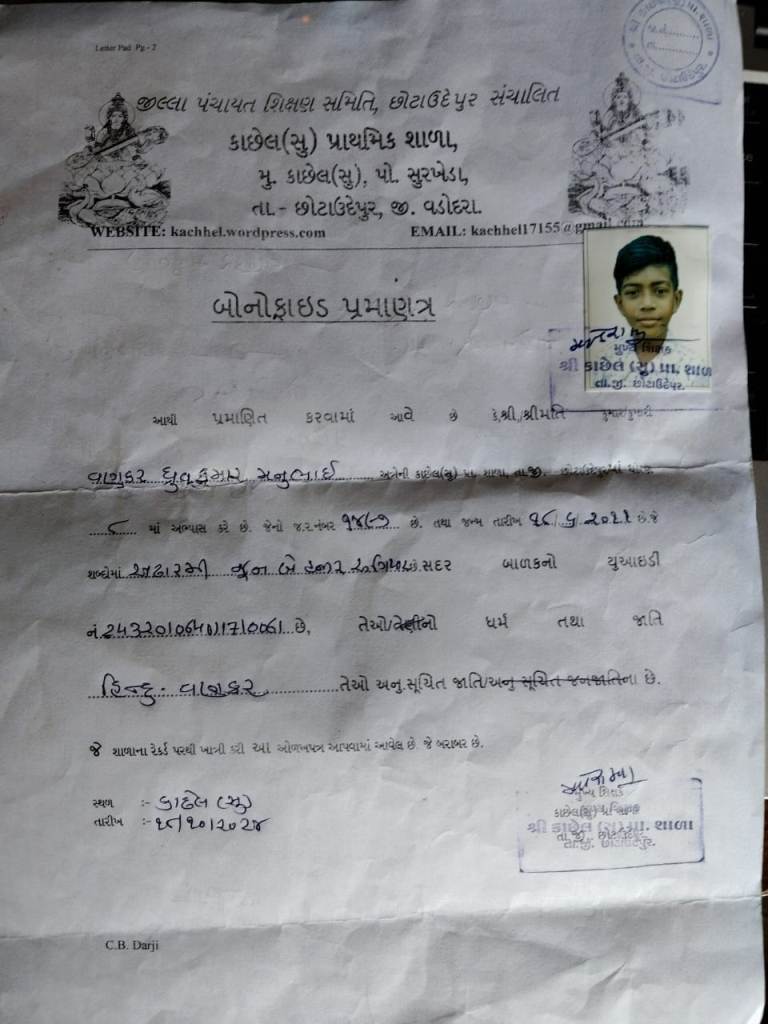 Letter Pad Pg - 2
જીલ્લા પંચાયત શિક્ષણ સમિતિ, છોટાઉદેપુર સંચાલિત
કાછેલ(સુ) પ્રાથમિક શાળા,
મુ. કાછેલ(સુ), પો. સુરખેડા,
તા.- છોટાઉદેપુર, જી. વડોદરા.
WEBSITE: kachhel.wordpress.com EMAIL: kachhel17155@gmail.com
બોનોફાઇડ પ્રમાણંત્ર
મુખ્ય શિક્ષક
શ્રી કાછેલ (સુ) પ્રા. શાળા
તા.જી. છોટાઉદેપુર.
આથી પ્રમાણિત કરવામાં આવે છે કે,શ્રી/શ્રીમતિ કુમાર/કુમારી
વાણકર ધ્રુવકુમાર મનુભાઈ અત્રેની કાછેલ(સુ) પ્રા. શાળા, તા.જી. છોટાઉદેપુરમાં
માં અભ્યાસ કરે છે. જેનો જ.ર.નંબર છે. તથા જન્મ તારીખ છે.જે
શબ્દોમાં અઢારમી જુન બે હજાર છે.સદર બાળકનો યુઆઇડી
નં.243201064011710061 છે, તેઓ/તેણીનો ધર્મ તથા જાતિ
હિન્દુ - વાણકર તેઓ અનુ.સૂચિત જાતિ/અનુ સૂચિત જનજાતિના છે.
જે શાળાના રેકર્ડ પરથી ખાત્રી કરી આ ઓળખપત્ર આપવામાં આવેલ છે. જે બરાબર છે.
સ્થળ :- કાછેલ (સુ)
તારીખ :- ૧૮/૧૦/૨૦૨૪
મુખ્ય શિક્ષક
કાછેલ(સુ) પ્રા શાળા
શ્રી કાછેલ (સુ) પ્રા. શાળા
તા.જી. છોટાઉદેપુર.
C.B. Darji